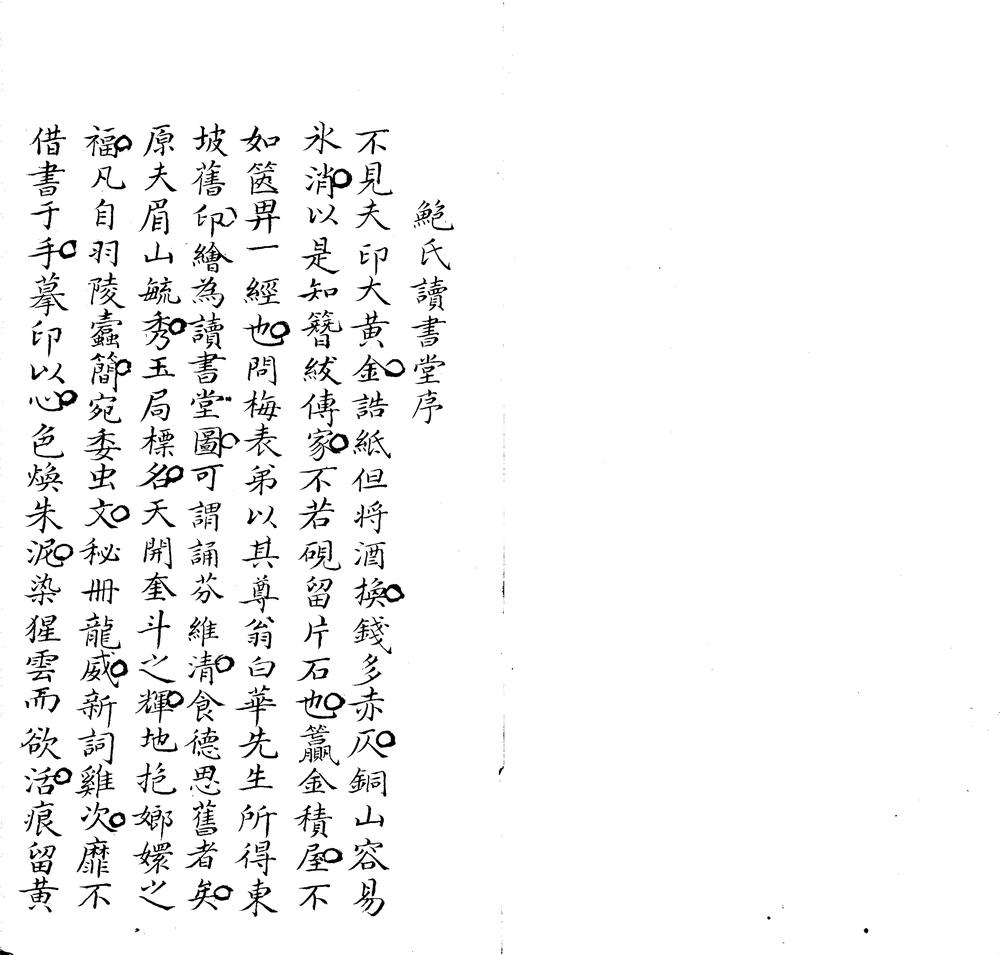 鮑氏讀書堂序
不見夫印大黃金誥紙但將酒換錢多赤仄銅山容易
氷消以是知簪紱傳家不若硯留片石也籯金積屋不
如篋畀一經也問梅表弟以其尊翁白華先生所得東
坡舊印繪為讀書堂圖可謂誦芬維清食德思舊者矣
原夫眉山毓秀玉局標名天開奎斗之輝地挹嫏嬛之
福凡自羽陵蠧簡宛委虫文秘冊龍威新詞雞次靡不
借書于手摹印以心色煥朱泥染猩雲而欲活痕留黃